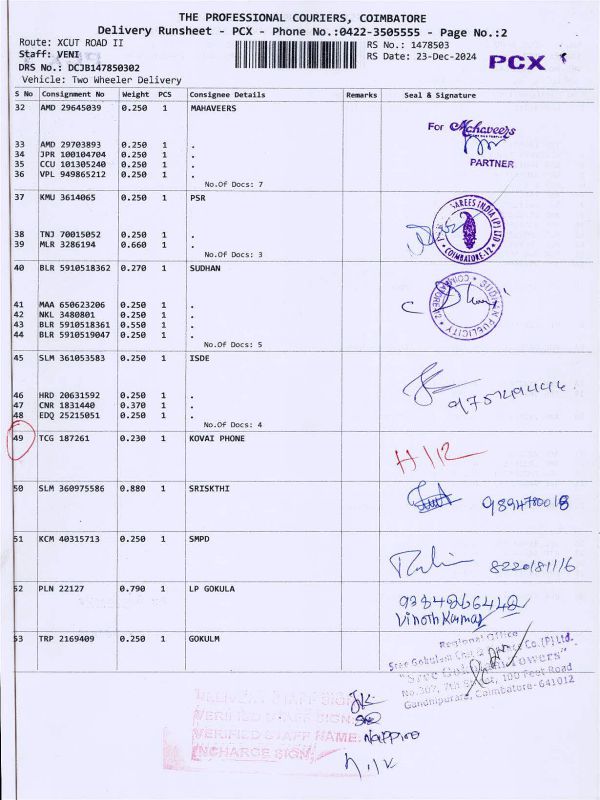 THE PROFESSIONAL COURIERS, COIMBATORE
Delivery Runsheet - PCX - Phone No.:0422-3505555 - Page No.:2
Route: XCUT ROAD II RS No.: 1478503
Staff: VENI RS Date: 23-Dec-2024 PCX
DRS No.: DCJB147850302
Vehicle: Two Wheeler Delivery
S No Consignment No Weight PCS Consignee Details Remarks Seal & Signature
32 AMD 29645039 0.250 1 MAHAVEERS
For Mahaveers
33 AMD 29703893 0.250 1 .
34 JPR 100104704 0.250 1 .
35 CCU 101305240 0.250 1 .
PARTNER
36 VPL 949865212 0.250 1 .
No.Of Docs: 7
37 KMU 3614065 0.250 1 PSR
SAREES INDIA (P) LTD
COIMBATORE-12
38 TNJ 70015052 0.250 1 .
39 MLR 3286194 0.660 1 .
No.Of Docs: 3
40 BLR 5910518362 0.270 1 SUDHAN
41 MAA 650623206 0.250 1 .
42 NKL 3480801 0.250 1 .
43 BLR 5910518361 0.550 1 .
44 BLR 5910519047 0.250 1 .
No.Of Docs: 5
45 SLM 361053583 0.250 1 ISDE
46 HRD 20631592 0.250 1 .
47 CNR 1831440 0.370 1 .
48 EDQ 25215051 0.250 1 .
No.Of Docs: 4
49 TCG 187261 0.230 1 KOVAI PHONE
50 SLM 360975586 0.880 1 SRISKTHI
9894780018
51 KCM 40315713 0.250 1 SMPD
8220181116
52 PLN 22127 0.790 1 LP GOKULA
9384266442
Vinoth Kumar
53 TRP 2169409 0.250 1 GOKULM
Regional Office
Sree Gokulam Chit & Finance Co.(P) Ltd.
No.307, 7th Street, 100 Feet Road
Gandhipuram, Coimbatore-641012
DELIVERY STAFF SIGN
VERIFIED STAFF SIGN
VERIFIED STAFF NAME
INCHARGE SIGN